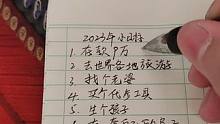 2023年小目标
1. 存款P万
2. 去世界各地旅游
3. 找个老婆
4. 买个代步工具
5. 生个孩子